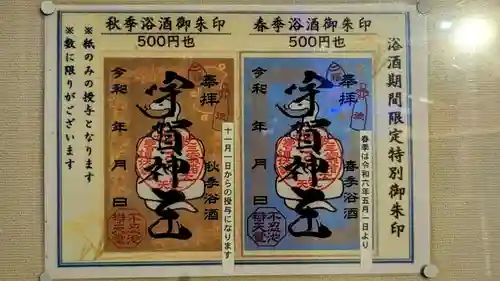 浴酒期間限定特別御朱印
春季浴酒御朱印
500円也
奉拝
宇賀神王
春季浴酒
令和 年 月 日
不忍池
辯天堂
春季は令和六年五月一日より
秋季浴酒御朱印
500円也
奉拝
宇賀神王
秋季浴酒
令和 年 月 日
不忍池
辯天堂
十一月一日からの授与になります
※紙のみの授与となります
※数に限りがございます